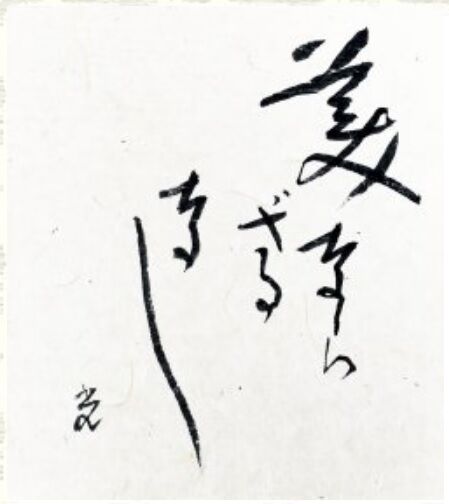 美なら
ざる
なし
光